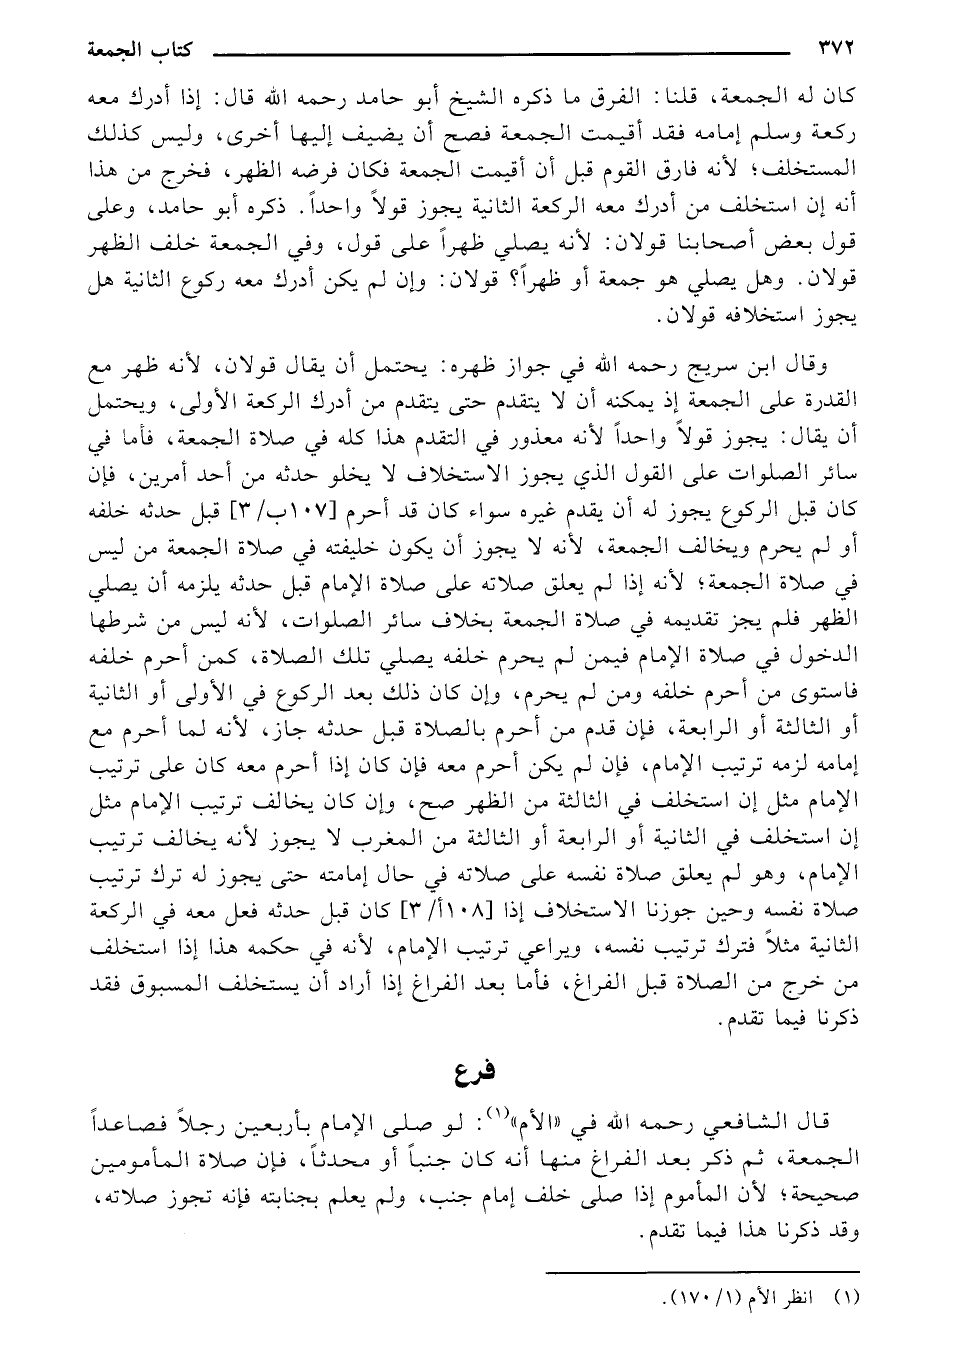 ٣٧٢ كتاب الجمعة
كان له الجمعة، قلنا: الفرق ما ذكره الشيخ أبو حامد رحمه الله قال: إذا أدرك معه
ركعة وسلم إمامه فقد أقيمت الجمعة فصح أن يضيف إليها أخرى، وليس كذلك
المستخلف؛ لأنه فارق القوم قبل أن أقيمت الجمعة فكان فرضه الظهر، فخرج من هذا
أنه إن استخلف من أدرك معه الركعة الثانية يجوز قولاً واحداً. ذكره أبو حامد، وعلى
قول بعض أصحابنا قولان: لأنه يصلي ظهراً على قول، وفي الجمعة خلف الظهر
قولان. وهل يصلي هو جمعة أو ظهراً؟ قولان: وإن لم يكن أدرك معه ركوع الثانية هل
يجوز استخلافه قولان.
وقال ابن سريج رحمه الله في جواز ظهره: يحتمل أن يقال قولان، لأنه ظهر مع
القدرة على الجمعة إذ يمكنه أن لا يتقدم حتى يتقدم من أدرك الركعة الأولى، ويحتمل
أن يقال: يجوز قولاً واحداً لأنه معذور في التقدم هذا كله في صلاة الجمعة، فأما في
سائر الصلوات على القول الذي يجوز الاستخلاف لا يخلو حدثه من أحد أمرين، فإن
كان قبل الركوع يجوز له أن يقدم غيره سواء كان قد أحرم [١٠٧ب/ ٣] قبل حدثه خلفه
أو لم يحرم ويخالف الجمعة، لأنه لا يجوز أن يكون خليفته في صلاة الجمعة من ليس
في صلاة الجمعة؛ لأنه إذا لم يعلق صلاته على صلاة الإمام قبل حدثه يلزمه أن يصلي
الظهر فلم يجز تقديمه في صلاة الجمعة بخلاف سائر الصلوات، لأنه ليس من شرطها
الدخول في صلاة الإمام فيمن لم يحرم خلفه يصلي تلك الصلاة، كمن أحرم خلفه
فاستوى من أحرم خلفه ومن لم يحرم، وإن كان ذلك بعد الركوع في الأولى أو الثانية
أو الثالثة أو الرابعة، فإن قدم من أحرم بالصلاة قبل حدثه جاز، لأنه لما أحرم مع
إمامه لزمه ترتيب الإمام، فإن لم يكن أحرم معه فإن كان إذا أحرم معه كان على ترتيب
الإمام مثل إن استخلف في الثالثة من الظهر صح، وإن كان يخالف ترتيب الإمام مثل
إن استخلف في الثانية أو الرابعة أو الثالثة من المغرب لا يجوز لأنه يخالف ترتيب
الإمام، وهو لم يعلق صلاة نفسه على صلاته في حال إمامته حتى يجوز له ترك ترتيب
صلاة نفسه وحين جوزنا الاستخلاف إذا [١٠٨أ/ ٣] كان قبل حدثه فعل معه في الركعة
الثانية مثلاً فترك ترتيب نفسه، ويراعي ترتيب الإمام، لأنه في حكمه هذا إذا استخلف
من خرج من الصلاة قبل الفراغ، فأما بعد الفراغ إذا أراد أن يستخلف المسبوق فقد
ذكرنا فيما تقدم.
فرع
قال الشافعي رحمه الله في «الأم»(١): لو صلى الإمام بأربعين رجلاً فصاعداً
الجمعة، ثم ذكر بعد الفراغ منها أنه كان جنباً أو محدثاً، فإن صلاة المأمومين
صحيحة؛ لأن المأموم إذا صلى خلف إمام جنب، ولم يعلم بجنابته فإنه تجوز صلاته،
وقد ذكرنا هذا فيما تقدم.
(١) انظر الأم (١/ ١٧٠).